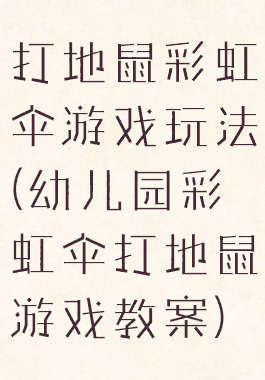 打地鼠彩虹
伞游戏玩法
(幼儿园彩
虹伞打地鼠
游戏教案)